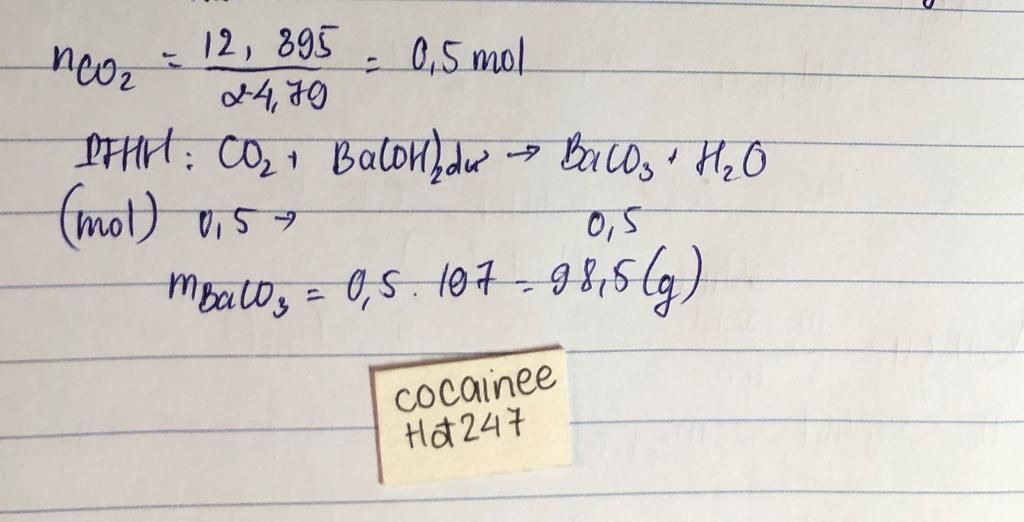 nCO₂ = 12,395 / 24,79 = 0,5 mol
PTHH: CO₂ + Ba(OH)₂ dư → BaCO₃ + H₂O
(mol) 0,5 → 0,5
mBaCO₃ = 0,5 . 197 = 98,5 (g)
cocainee
Hot247